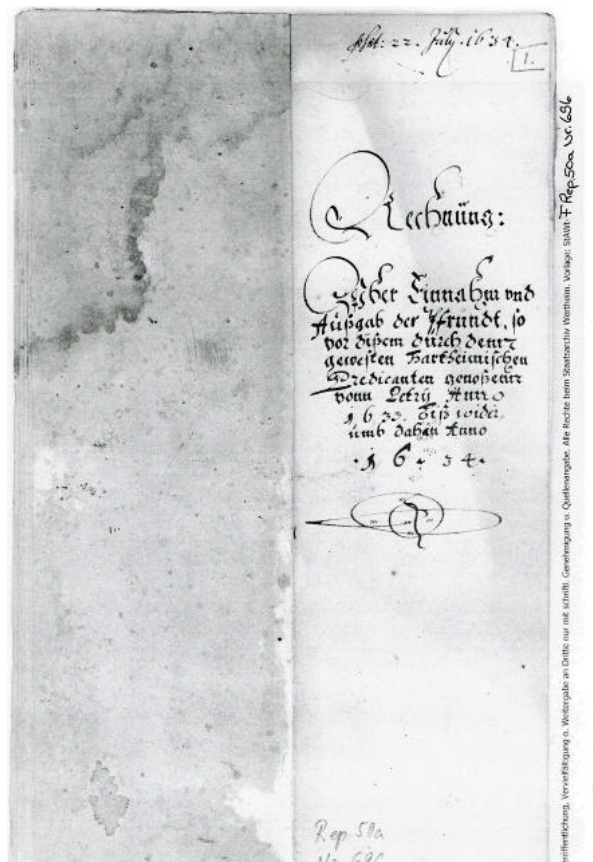 22. July. 1634.
1.
Rechnüng:
Vber Einnahm vnd
Außgab der Pfründt, so
vor dißem dürch denn
gewesten Hartheimischen
Predicanten genoßenn
vonn Petrÿ Anno
1633. biß wider
umb dahin Anno
·1634·
Rep. 50a
F Rep. 50a Nr. 696
röffentlichung, Vervielfältigung o. Weitergabe an Dritte nur mit schriftl. Genehmigung o. Quellenangabe. Alle Rechte beim Staatsarchiv Wertheim. Vorlage: StAWt-